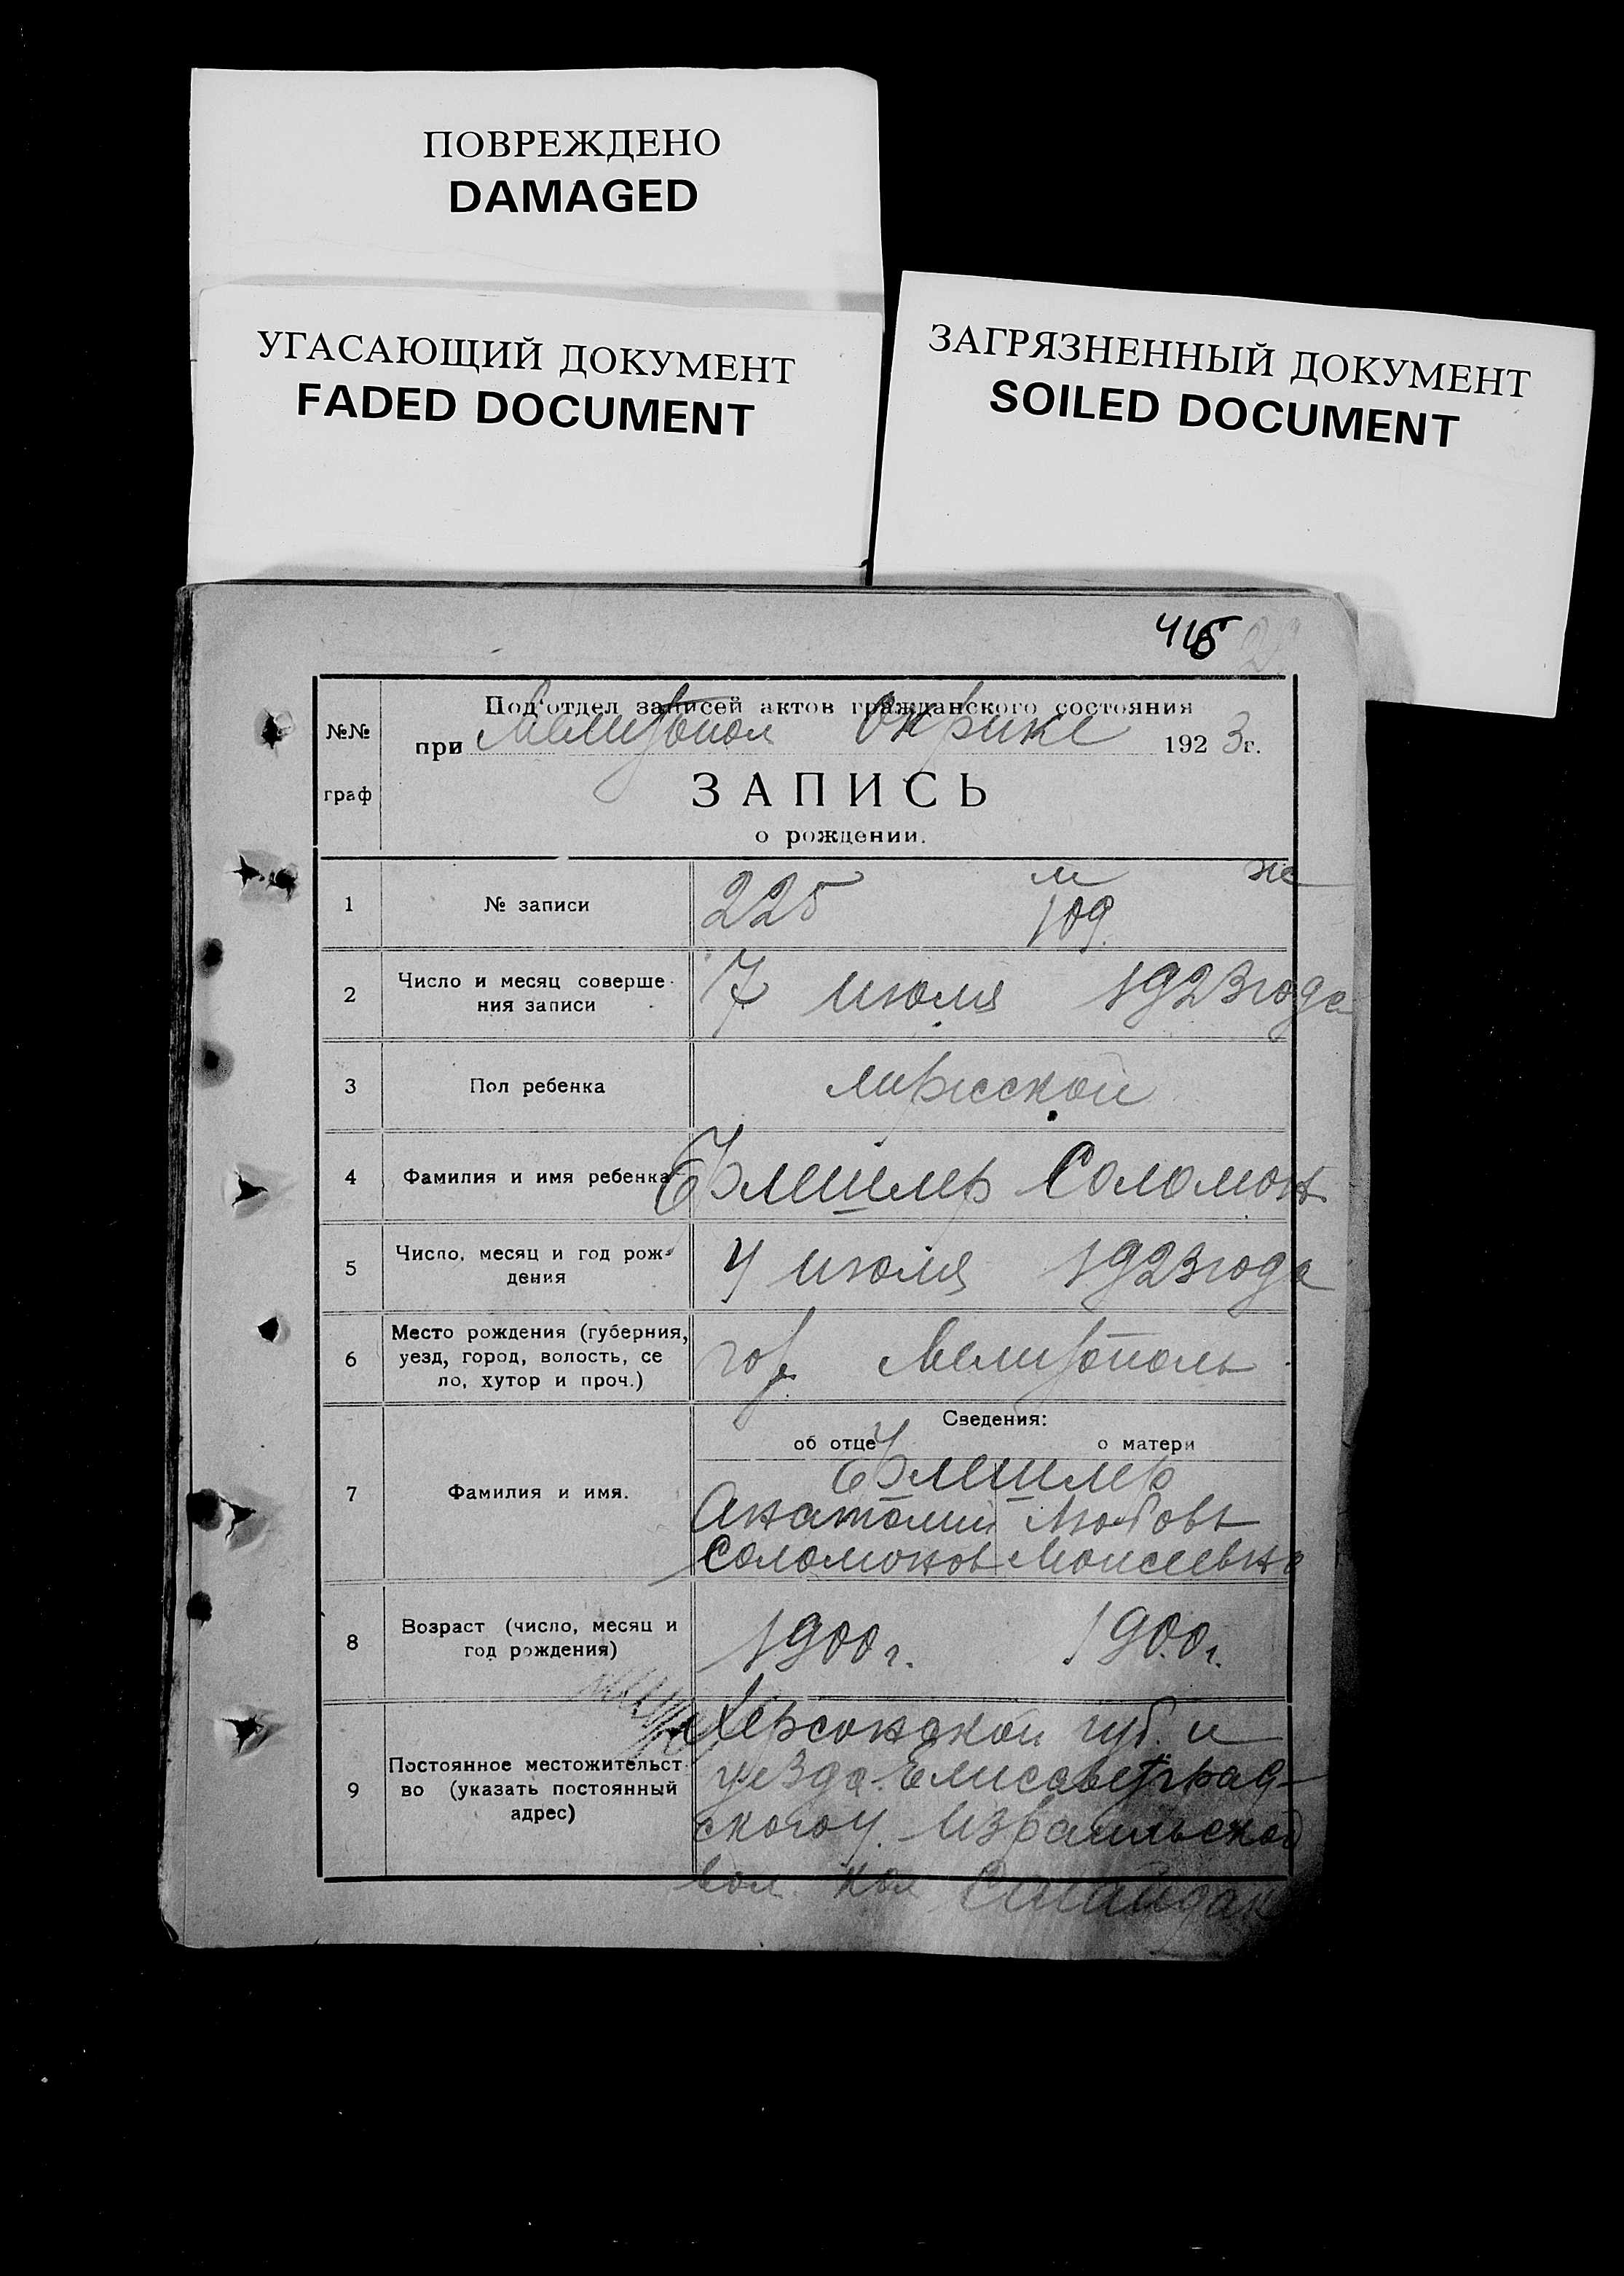 ПОВРЕЖДЕНО
DAMAGED
УГАСАЮЩИЙ ДОКУМЕНТ
FADED DOCUMENT
ЗАГРЯЗНЕННЫЙ ДОКУМЕНТ
SOILED DOCUMENT
№№
граф
Под'отдел записей актов гражданского состояния
при Мелитопол Окрике 1923г.
ЗАПИСЬ
о рождении.
м же
1 № записи 225 109
2 Число и месяц соверше-
ния записи 7 июля 1923 года
3 Пол ребенка мужской
4 Фамилия и имя ребенка Соломон
5 Число, месяц и год рож-
дения 4 июля 1923 года
6 Место рождения (губерния,
уезд, город, волость, се
ло, хутор и проч.) гор. Мелитополь
Сведения:
об отце о матери
7 Фамилия и имя.
Анатолий Любовь
Соломонов Моисеевна
8 Возраст (число, месяц и
год рождения) 1900г. 1900г.
9 Постоянное местожительст-
во (указать постоянный
адрес)
Херсонской губ. и
уезда. Елисаветград-
ского у. Израильской
вол. кол Сагайдак